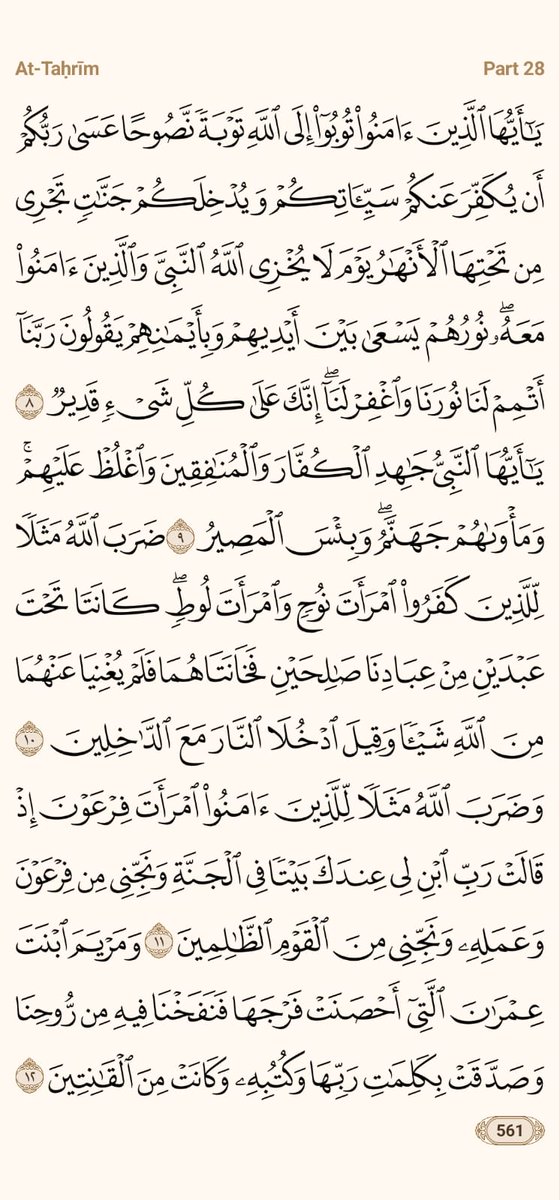 At-Taḥrīm
Part 28
يَـٰٓأَيُّهَا ٱلَّذِينَ ءَامَنُوا۟ تُوبُوٓا۟ إِلَى ٱللَّهِ تَوْبَةً نَّصُوحًا عَسَىٰ رَبُّكُمْ
أَن يُكَفِّرَ عَنكُمْ سَيِّـَٔاتِكُمْ وَيُدْخِلَكُمْ جَنَّـٰتٍ تَجْرِى
مِن تَحْتِهَا ٱلْأَنْهَـٰرُ يَوْمَ لَا يُخْزِى ٱللَّهُ ٱلنَّبِىَّ وَٱلَّذِينَ ءَامَنُوا۟
مَعَهُۥ ۖ نُورُهُمْ يَسْعَىٰ بَيْنَ أَيْدِيهِمْ وَبِأَيْمَـٰنِهِمْ يَقُولُونَ رَبَّنَآ
أَتْمِمْ لَنَا نُورَنَا وَٱغْفِرْ لَنَآ ۖ إِنَّكَ عَلَىٰ كُلِّ شَىْءٍ قَدِيرٌ ٨
يَـٰٓأَيُّهَا ٱلنَّبِىُّ جَـٰهِدِ ٱلْكُفَّارَ وَٱلْمُنَـٰفِقِينَ وَٱغْلُظْ عَلَيْهِمْ ۚ
وَمَأْوَىٰهُمْ جَهَنَّمُ ۖ وَبِئْسَ ٱلْمَصِيرُ ٩ ضَرَبَ ٱللَّهُ مَثَلًا
لِّلَّذِينَ كَفَرُوا۟ ٱمْرَأَتَ نُوحٍ وَٱمْرَأَتَ لُوطٍ ۖ كَانَتَا تَحْتَ
عَبْدَيْنِ مِنْ عِبَادِنَا صَـٰلِحَيْنِ فَخَانَتَاهُمَا فَلَمْ يُغْنِيَا عَنْهُمَا
مِنَ ٱللَّهِ شَيْـًٔا وَقِيلَ ٱدْخُلَا ٱلنَّارَ مَعَ ٱلدَّٰخِلِينَ ١٠
وَضَرَبَ ٱللَّهُ مَثَلًا لِّلَّذِينَ ءَامَنُوا۟ ٱمْرَأَتَ فِرْعَوْنَ إِذْ
قَالَتْ رَبِّ ٱبْنِ لِى عِندَكَ بَيْتًا فِى ٱلْجَنَّةِ وَنَجِّنِى مِن فِرْعَوْنَ
وَعَمَلِهِۦ وَنَجِّنِى مِنَ ٱلْقَوْمِ ٱلظَّـٰلِمِينَ ١١ وَمَرْيَمَ ٱبْنَتَ
عِمْرَٰنَ ٱلَّتِىٓ أَحْصَنَتْ فَرْجَهَا فَنَفَخْنَا فِيهِ مِن رُّوحِنَا
وَصَدَّقَتْ بِكَلِمَـٰتِ رَبِّهَا وَكُتُبِهِۦ وَكَانَتْ مِنَ ٱلْقَـٰنِتِينَ ١٢
561